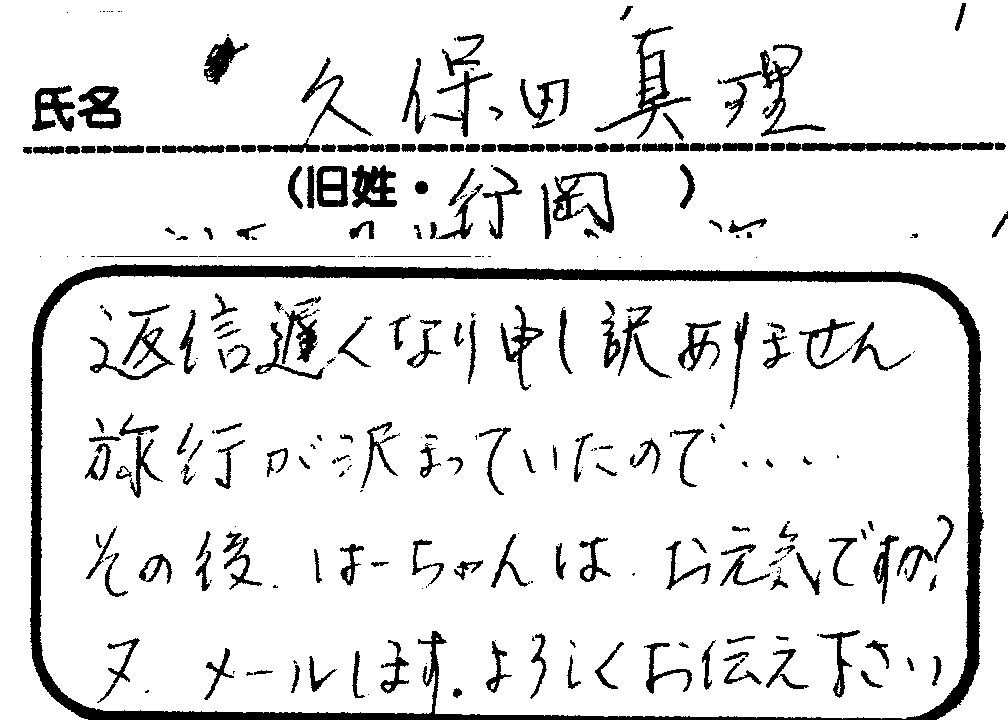 氏名 久保田真理
(旧姓・行岡)
返信遅くなり申し訳ありません
旅行が決まっていたので....
その後.はーちゃんは.お元気ですか?
又.メールします.よろしくお伝え下さい